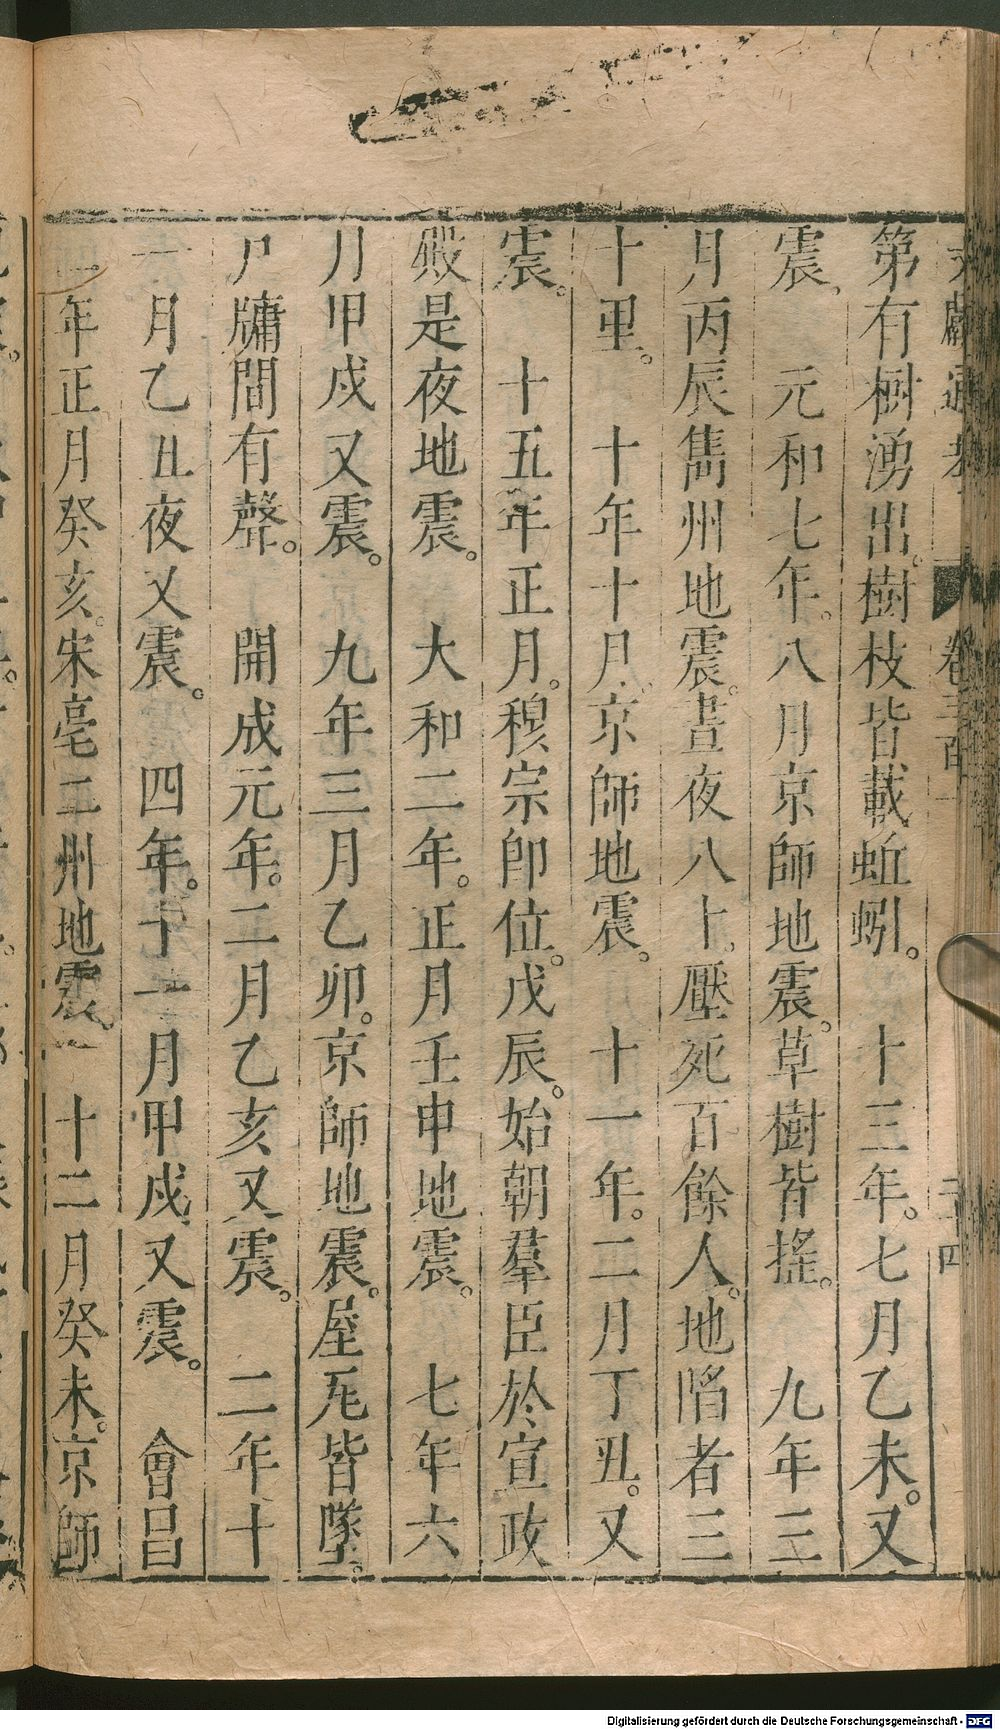 第有樹湧出。樹枝皆載蚯蚓。 十三年。七月乙未。又
震。 元和七年。八月京師地震。草樹皆搖。 九年三
月丙辰雋州地震。晝夜八十。壓死百餘人。地陷者三
十里。 十年十月京師地震。 十一年。二月丁丑。又
震。 十五年正月。穆宗卽位。戊辰。始朝羣臣於宣政
殿是夜地震。 大和二年。正月壬申地震。 七年六
月甲戌又震。 九年三月乙卯。京師地震。屋瓦皆墜。
戶牗間有聲。 開成元年。二月乙亥又震。 二年十
一月乙丑夜又震。 四年。十一月甲戌又震。 會昌
二年正月癸亥。宋亳二州地震。 十二月癸未。京師
卷三百一
二十四
Digitalisierung gefördert durch die Deutsche Forschungsgemeinschaft - DFG